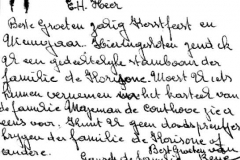 E.H. Heer
Beste Groeten zalig Kerstfeest en
Nieuwjaar. Hieringesloten zend ik
U een gedeeltelijk stamboom der
familie de Horisone. Moest U iets
kunnen vernemen het kasteel van
de familie Mazeman de Couthove zie
eens voor. Kunt U geen doodsprentjes
krijgen der familie de Horisone of
andere. Best Groeten van
familie